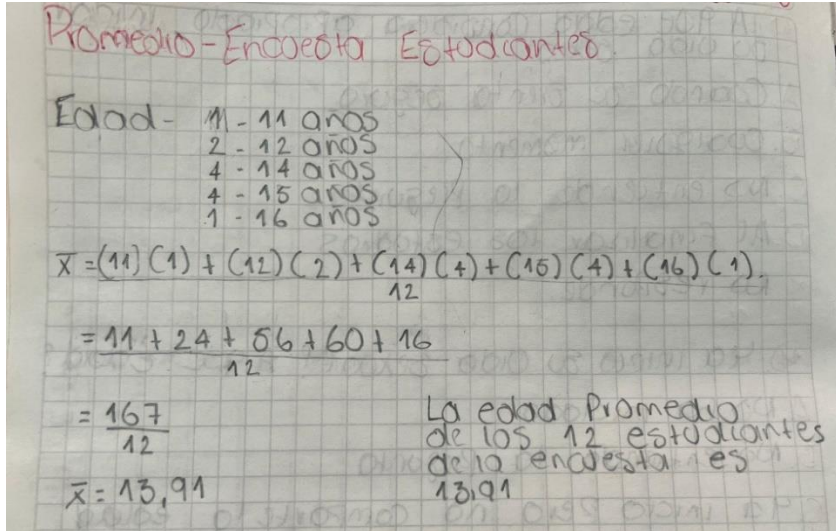 Promedio - Encuesta Estudiantes
Edad - 1 - 11 años
2 - 12 años
4 - 14 años
4 - 15 años
1 - 16 años
x̄ = (11) (1) + (12) (2) + (14) (4) + (15) (4) + (16) (1).
12
= 11 + 24 + 56 + 60 + 16
12
= 167
12
x̄ = 13,91
La edad Promedio
de los 12 estudiantes
de la encuesta es
13,91